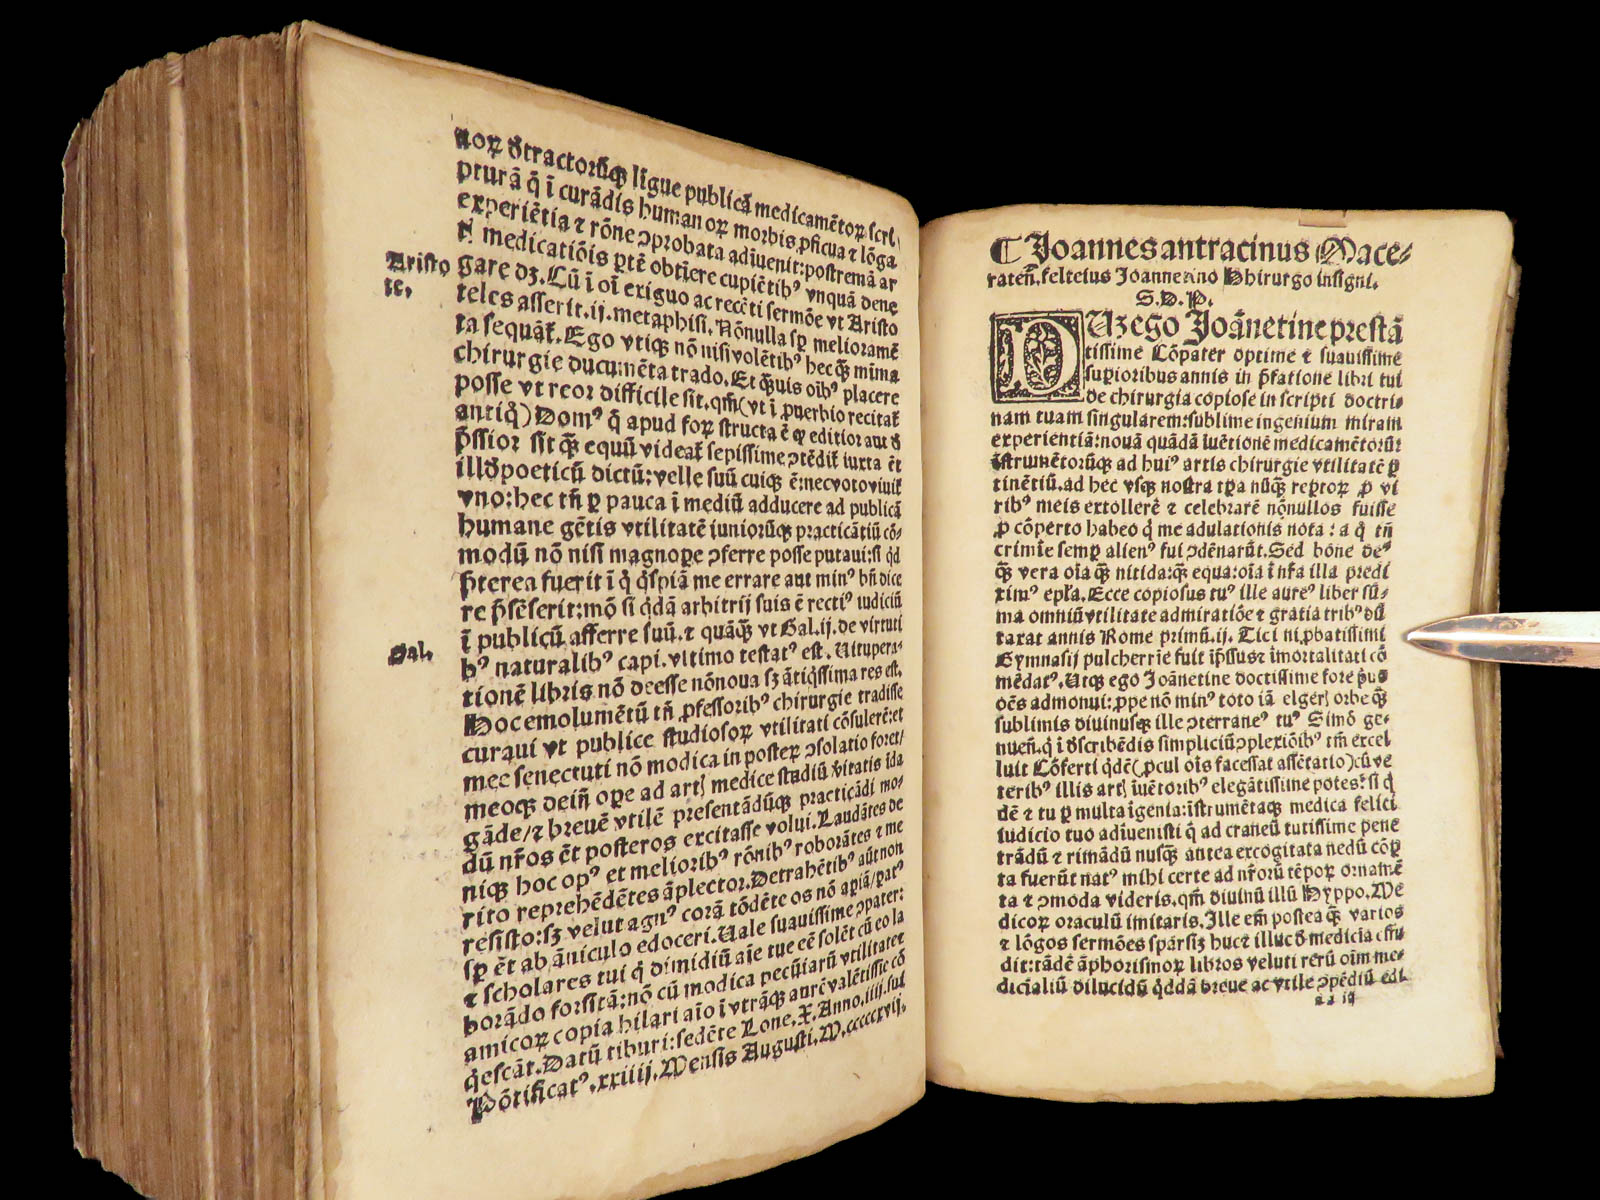 noꝝ ðtractorũqꝫ ligue publicã medicamẽtoꝝ scri
pturã q̃ ĩ curãdis humanoꝝ morbis ꝓficua ⁊ lõga
experiẽtia ⁊ rõne ꝯprobata adĩuenit: postremã ar
medicatiõis ꝑtẽ obtĩere cupiẽtibꝰ vnquã dene
Aristo
te.
gare dꝫ. Cũ ĩ oĩ exiguo ac recẽti sermõe vt Aristo
teles asserit. ij. metaphisi. Nõnulla sꝑ melioramẽ
ta sequãt̃. Ego vtiqꝫ nõ nisi volẽtibꝰ hec q̃ꝫ mĩma
chirurgie documẽta trado. Et q̃uis oĩbꝰ placere
posse vt reor difficile sit. qm̃ (vt ĩ ꝓuerbio recitat̃
antiq̃) Domꝰ q̃ apud foꝝ structa ẽ editior aut
p̃ssior sit q̃ꝫ equũ videat̃ sepissime ꝯtẽdit̃ iuxta ẽt
illð poeticũ dictũ: velle suũ cuiqꝫ ẽ: nec voto viuit̃
vno: hec tñ ꝑ pauca ĩ mediũ adducere ad publicã
humane gẽtis vtilitatẽ iuniorũqꝫ practicãtiũ cõ⸗
modũ nõ nisi magnoꝑe ꝯferre posse putaui: si q̃d
p̃terea fuerit ĩ q̃ q̃spiã me errare aut minꝰ bñ dice
re p̃sẽserit: mõ si q̃dã arbitrij suis ẽ rectiꝰ iudiciũ
ĩ publicũ afferre suũ. ⁊ quãq̃ꝫ vt Gal. ij. de virtuti
Gal.
bꝰ naturalibꝰ capi. vltimo testatꝰ est. Uitupera⸗
tionẽ libris nõ deesse nõ noua sꝫ ãtiq̃ssima res est.
Hoc emolumẽtũ tñ ꝓfessoribꝰ chirurgie tradisse
curaui vt publice studiosoꝝ vtilitati cõsulerẽ: et
mee senectuti nõ modica in posteꝝ ꝯsolatio foret/
meoqꝫ deiñ oꝑe ad artꝭ medice studiũ ṽitatis ĩda
gãde/ ⁊ breuẽ vtilẽ presentãdũqꝫ practicãdi mo⸗
dũ nr̃os ẽt posteros excitasse volui. Laudãtes de
niqꝫ hoc opꝰ et melioribꝰ rõnibꝰ roborãtes ⁊ me
rito reprehẽdẽtes ãplector. Detrahẽtibꝰ aũt non
resisto: sꝫ velut agnꝰ corã tõdẽte os nõ apiã/ patꝰ
sꝑ ẽt ab ãniculo edoceri. Uale suauissime ꝯpater:
⁊ scholares tui q̃ dimidiũ aĩe tue cẽ solẽt cũ eo la
borãdo forsitã: nõ cũ modica pecũiarũ vtilitate ⁊
amicoꝝ copia hilari aĩo ĩ vtrãqꝫ aurẽ valẽtissie cõ
q̃escãt. Datũ tiburi: sedẽte Leone. X. Anno. iiij. sui
Põtificatꝰ. xxiiij. Mensis Augusti. M.cccccxvij.
¶ Joannes antracinus Mace⸗
rateñ. felteius Joannetino Chirurgo insigni.
S. D. P.
DUꝫ ego Joãnetine prestã
tissime Cõpater optime ⁊ suauissime
suꝑioribus annis in p̃fatione libri tui
de chirurgia copiose inscripti doctri⸗
nam tuam singularem: sublime ingenium miram
experientiã: nouã quãdã ĩuẽtionẽ medicamẽtorũ
ĩstrumẽtorũqꝫ ad huiꝰ artis chirurgie vtilitatẽ ꝑ
tinẽtiũ. ad hec vsqꝫ nostra tꝑa nũq̃ꝫ reꝑtoꝝ ꝓ vi
ribꝰ meis extollerẽ ⁊ celebrarẽ nõnullos fuisse
ꝓ cõperto habeo q̃ me adulationis nota: a q̃ tñ
crimĩe semꝑ alienꝰ fui ꝯdẽnarũt. Sed bone deꝰ
q̃ꝫ vera oĩa q̃ꝫ nitida: q̃ꝫ equa: oĩa ĩ nr̃a illa predi
ximꝰ epl̃a. Ecce copiosus tuꝰ ille aureꝰ liber sũ⸗
ma omniũ vtilitate admiratiõe ⁊ gratia tribꝰ dũ
taxat annis Rome primũ. ij. Ticini ꝓbatissimi
Gymnasij pulcherrie fuit ĩp̃ssus ⁊ ĩmortalitati cõ
mẽdatꝰ. Utqꝫ ego Joãnetine doctissime fore priꝰ
oẽs admonui: ꝓpe nõ minꝰ toto iã elger̃ orbe q̃ꝫ
sublimis diuinusqꝫ ille ꝯterraneꝰ tuꝰ Simõ ge⸗
nueñ. q̃ ĩ ðscribẽdis simpliciũ ꝯplexiõibꝰ tm̃ excel
luit Cõferti q̃dẽ (ꝓcul oĩs facessat assẽtatio) cũ ve
teribꝰ illis artꝭ ĩuẽtoribꝰ elegãtissime potes: si q̃
dẽ ⁊ tu ꝑ multa ĩgenia: ĩstrumẽtaqꝫ medica felici
iudicio tuo adĩuenisti q̃ ad craneũ tutissime pene
trãdũ ⁊ rimãdũ nusqꝫ antea excogitata nedũ cõꝑ
ta fuerũt natꝰ mihi certe ad nr̃orũ tẽpoꝝ ornamẽ
ta ⁊ ꝯmoda videris. qm̃ diuinũ illũ Hyppo. Me
dicoꝝ oraculũ imitaris. Ille em̃ postea q̃ꝫ varios
⁊ lõgos sermões sparsiꝫ huc ⁊ illuc ð medicĩa effu
dit: tãdẽ ãphorismoꝝ libros veluti rerũ oĩm me⸗
dicialiũ dilucidũ q̃ddã breue ac vtile ꝯpẽdiũ edi.
aa ij